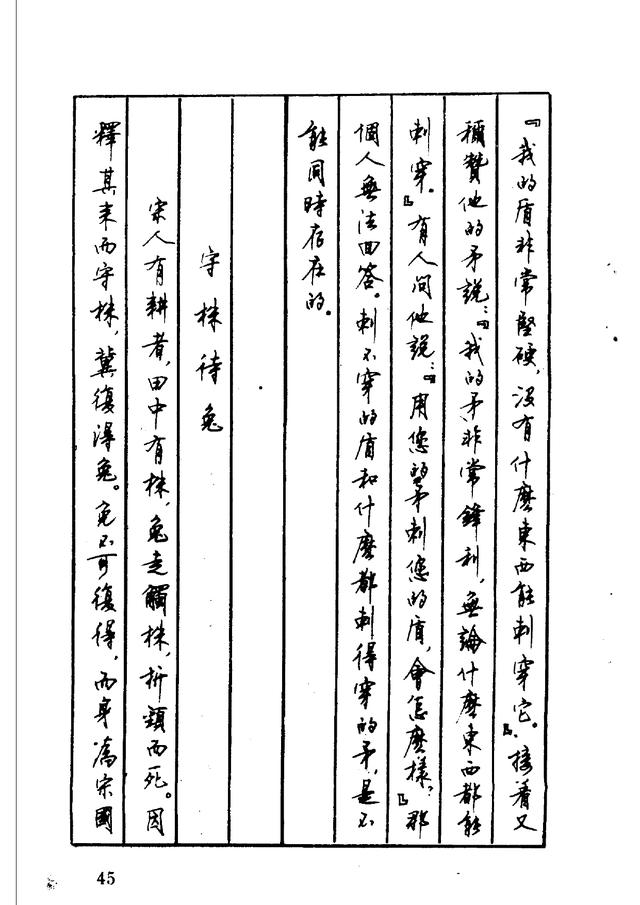 『我的盾非常堅硬，沒有什麼東西能刺穿它。』接着又
稱贊他的矛說：『我的矛非常鋒利，無論什麼東西都能
刺穿。』有人問他說：『用您的矛刺您的盾，會怎麼樣？』那
個人無法回答。刺不穿的盾和什麼都刺得穿的矛，是不
能同時存在的。
守株待兔
宋人有耕者，田中有株，兔走觸株，折頸而死。因
釋其耒而守株，冀復得兔。兔不可復得，而身為宋國
45